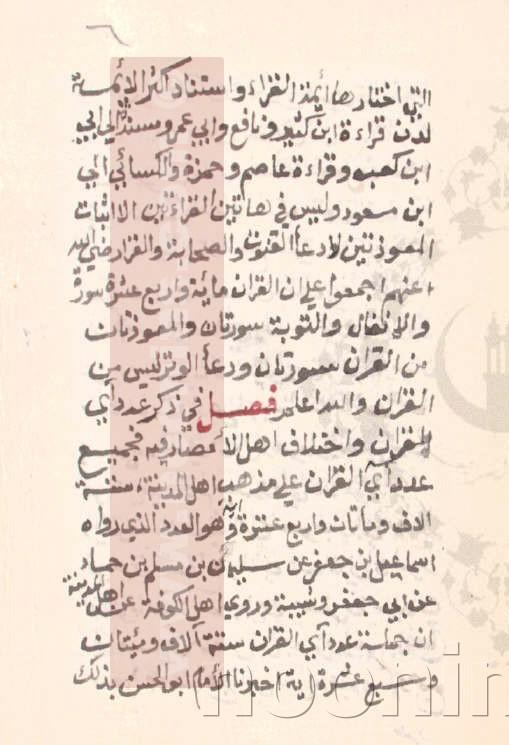 ٦
التي اختارها أيمة القراء واستناد اكثر الأئمة
لدن قراءة ابن كثير ونافع وابي عمرو مستندة الي ابي
ابن كعب وقراءة عاصم وحمزة والكسائي الي
ابن مسعود وليس في هاتين القراءتين الا اثبات
المعوذتين لا دعا القنوت والصحابة والقرا رضي الله
عنهم اجمعوا علي ان القران مائة واربع عشرة سورة
والانفال والتوبة سورتان والمعوذتان
من القران سورتان ودعا الوتر ليس من
القران والله اعلم فصل في ذكر عدد آي
القران واختلاف اهل الأمصار فيه فجميع
عدد آي القران علي مذهب اهل المدينة ستة
الاف وماتان واربع عشرة اية وهو العدد الذي رواه
اسماعيل بن جعفر عن سليمان بن مسلم بن جماز
عن ابي جعفر وشيبة وروي اهل الكوفة عن اهل المدينة
ان جملة عدد آي القران ستة آلاف ومئتان
وسبع عشرة اية اخبرنا الأمام ابو الحسن بذلك
noorin